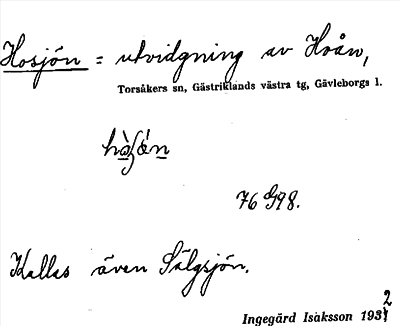 Hosjön = utvidgning av Hoån,
Torsåkers sn, Gästriklands västra tg, Gävleborgs l.
Kallas även Sälgsjön.
Ingegärd Isaksson 1932